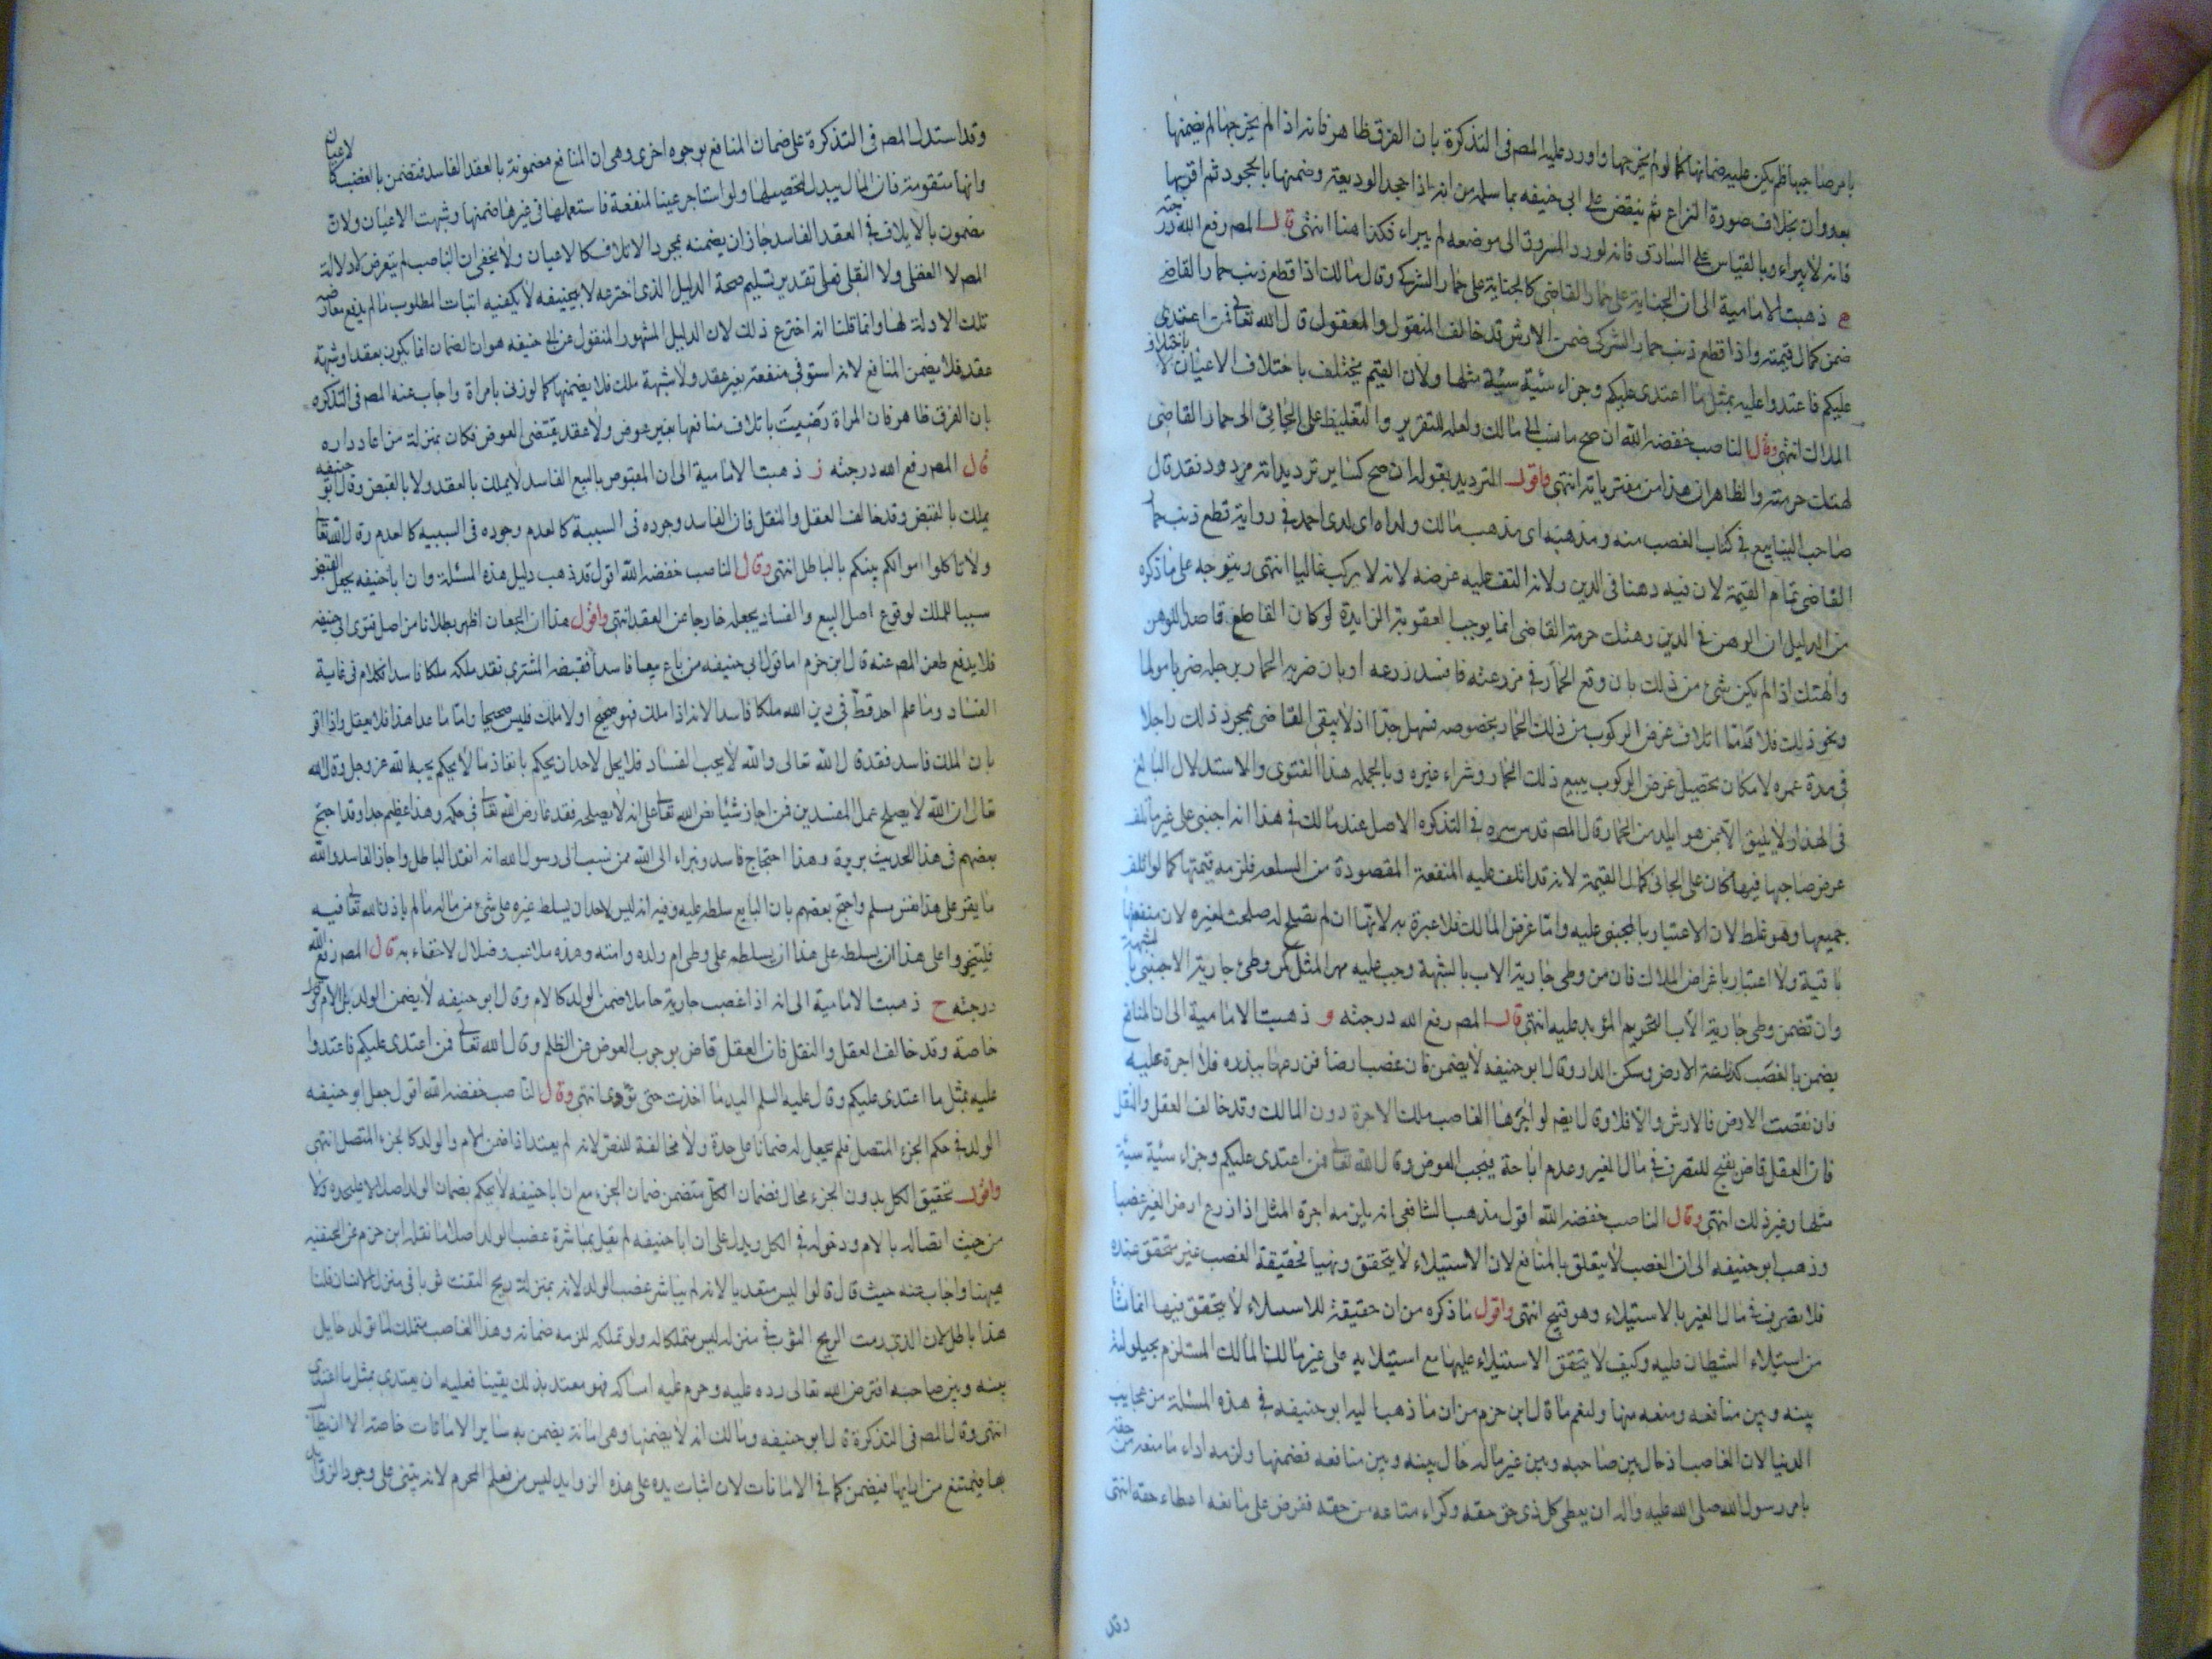 بامر صاحبها فلم يكن عليه ضمانها كما لو لم يخرجها واورد عليه المصه فى التذكرة بان الفرق ظاهر فانه اذا لم يخرجها لم يضمنها
بعدوان بخلاف صورة النزاع ثم ينقض على ابى حنيفه بما سلمه من انه اذا جحد الوديعة وضمنها بالجحود ثم اقر بها
فانه لا يبراء وبالقياس على السارق فانه لو رد المسروق الى موضعه لم يبراء فكذا هنا انتهى قال المصه رفع الله درجته
ه ذهبت الامامية الى ان الجناية على حمار القاضى كالجناية على حمار الشركى وقال مالك اذا قطع ذنب حمار القاضى
ضمن كمال قيمته واذا قطع ذنب حمار الشركى ضمن الارش وقد خالف المنقول والمعقول قال الله تعالى فمن اعتدى
عليكم فاعتدوا عليه بمثل ما اعتدى عليكم وجزاء سيئة سيئة مثلها ولان القيم يختلف باختلاف الاعيان لا باختلاف
الملاك انتهى وقال الناصب خفضه الله ان صح ما نسب الى مالك ولعله للتقرير والتغليظ على الجانى الى حمار القاضى
لهتك حرمته والظاهر ان هذا من مفترياته انتهى واقول الترديد بقوله ان صح كساير ترديداته مردود فقد قال
صاحب الينابيع فى كتاب الغصب منه ومذهبه اى مذهب مالك ولداه اى لدى احمد فى رواية قطع ذنب حمار
القاضى تمام القيمة لان فيه وهنا فى الدين ولانه اتلف عليه غرضه لانه لا يركب غالبا انتهى ويتوجه على ما ذكره
من الدليل ان الوهن فى الدين وهتك حرمة القاضى انما يوجب العقوبة الزايدة لو كان القاطع قاصدا للوهن
والهتك اذا لم يكن شئ من ذلك بان وقع الحمار فى مزرعته فافسد زرعه او بان ضربه الحمار برجله ضربا مولما
ونحو ذلك فلا واما اتلاف غرض الركوب من ذلك الحمار بخصوصه فسهل جدا اذ لا يبقى القاضى بمجرد ذلك راجلا
فى مدة عمره لامكان تحصيل غرض الركوب ببيع ذلك الحمار وشراء غيره وبالجمله هذا الفتوى والاستدلال البالغ
فى الهذر ولا يليق الا بمن هو ابلد من الحمار قال المصه قدس سره فى التذكره الاصل عند مالك فى هذا انه اجنبى على غير ما تلف
غرض صاحبها فيها كان على الجانى كمال القيمة لانه قد اتلف عليه المنفعة المقصودة من السلعه فلزمه قيمتها كما لو اتلف
جميعها وهو غلط لان الاعتبار بالمجنى عليه واما غرض المالك فلا عبرة به لانها ان لم تصلح له صلحت لغيره لان منفعتها
باقية ولا اعتبار باغراض الملاك فان من وطى جارية الاب بالشبهة وجب عليه مهر المثل كمن وطئ جارية الاجنبى بالشبهة
وان تضمن وطى جارية الاب التحريم المؤبد عليه انتهى قال المصه رفع الله درجته و ذهبت الامامية الى ان المنافع
يضمن بالغصب كزراعة الارض وسكنى الدار وقال ابو حنيفه لا يضمن فان غصب ارضا فزرعها ببذره فلا اجرة عليه
فان نقصت الارض فالارش والا فلا وقال ايضا لو اجرها الغاصب ملك الاجرة دون المالك وقد خالف العقل والنقل
فان العقل قاض بقبح التصرف فى مال الغير وعدم اباحة فيجب العوض وقال الله تعالى فمن اعتدى عليكم وجزاء سيئة سيئة
مثلها وغير ذلك انتهى وقال الناصب خفضه الله اقول مذهب الشافعى انه يلزمه اجرة المثل اذا زرع ارض الغير غصبا
وذهب ابو حنيفه الى ان الغصب لا يتعلق بالمنافع لان الاستيلاء لا يتحقق فيها فحقيقة الغصب غير متحقق عنده
فلا تصرف فى مال الغير بالاستيلاء وهو قبيح انتهى واقول ما ذكره من ان حقيقة الاستيلاء لا يتحقق فيها انما نشأ
من استيلاء الشيطان عليه وكيف لا يتحقق الاستيلاء عليها مع استيلايه على عين مالك المالك المستلزم بحيلولته
بينه وبين منافعه ومنعه منها ولنعم ما قال ابن حزم من ان ما ذهب اليه ابو حنيفه فى هذه المسئلة من عجايب
الدنيا لان الغاصب اذ حال بين صاحبه وبين غير ماله حال بينه وبين منافعه فضمنها ولزمه اداء ما منعه من حقه
بامر رسول الله صلى الله عليه واله ان يعطى كل ذى حق حقه وكراء متاعه من حقه ففرض على مانعه اعطاء حقه انتهى
وقد
وقد استدل المصه فى التذكرة على ضمان المنافع بوجوه اخرى وهى ان المنافع مضمونة بالعقد الفاسد فتضمن بالغصب كالاعيان
وانها متقومة فان المال يبدل لتحصيلها ولو استاجر عينا لمنفعة فاستعملها فى غيرها ضمنها وشبهت الاعيان ولان
مضمون بالاتلاف فى العقد الفاسد جاز ان يضمنه بمجرد الاتلاف كالاعيان ولا يخفى ان الناصب لم يتعرض لادلة
المصه لا العقلى ولا النقلى فعلى تقدير تسليم صحة الدليل الذى اخترعه لابى حنيفه لا يكفيه اثبات المطلوب ما لم يدفع معارضه
تلك الادلة لها وانما قلنا انه اخترع ذلك لان الدليل المشهور المنقول عن ابى حنيفه هو ان الضمان انما يكون بعقد او شبهة
عقد فلا يضمن المنافع لانه استوفى منفعة بغير عقد ولا شبهة ملك فلا يضمنها كما لو زنى بامراة واجاب عنه المصه فى التذكره
بان الفرق ظاهر فان المراة رضيت باتلاف منافعها بغير عوض ولا عقد يقتضى العوض فكان بمنزلة من اعار داره
قال المصه رفع الله درجته ز ذهبت الامامية الى ان المقبوض بالبيع الفاسد لا يملك بالعقد ولا بالقبض وقال ابو حنيفه
يملك بالقبض وقد خالف العقل والنقل فان الفاسد وجوده فى السببية كالعدم وجوده فى السببيه كالعدم وقال الله تعالى
ولا تاكلوا اموالكم بينكم بالباطل انتهى وقال الناصب خفضه الله اقول قد ذهب دليل هذه المسئلة وان ابا حنيفه يجعل القبض
سببا للملك لوقوع اصل البيع والفساد يجعله خارجا عن العقد انتهى واقول هذا ان الجعلان اظهر بطلانا من اصل فتوى ابى حنيفه
فلا يدفع طعن المصه عنه قال ابن حزم اما قول ابى حنيفه من باع بيعا فاسدا فقبضه المشترى فقد ملكه ملكا فاسدا فكلام فى غاية
الفساد وما علم احد قط فى دين الله ملكا فاسدا لانه اذا ملك فهو صحيح او لا ملك فليس صحيحا واما ما عدا هذا فلا يعقل واذا اقر
بان الملك فاسد فقد قال الله تعالى والله لا يحب الفساد فلا يحل لاحد ان يحكم بانفاذ ما لا يحكم به الله عز وجل وقال الله
تعالى ان الله لا يصلح عمل المفسدين فمن اجاز شيئا نص الله تعالى على انه لا يصلحه فقد عارض الله تعالى فى حكمه وهذا عظيم جدا وقد احتج
بعضهم فى هذا الحديث بريرة وهذا احتجاج فاسد ونبراء الى الله ممن نسب الى رسول الله انه انفذ الباطل واجاز الفاسد والله
ما يقر على هذا نفس مسلم واحتج بعضهم بان البايع سلطه عليه وفيه انه ليس لاحد ان يسلط غيره على شئ من ماله ما لم ياذن الله تعالى فيه
فليتخيروا على هذا ان يسلطه على هذا ان يسلطه على وطى ام ولده وامته وهذه ملاعب وضلال لا خفاء به قال المصه رفع الله
درجته ح ذهبت الامامية الى انه اذا غصب جارية حاملا ضمن الولد كالام وقال ابو حنيفه لا يضمن الولد بل الام
خاصة وقد خالف العقل والنقل فان العقل قاض بوجوب العوض عن الظلم وقال الله تعالى فمن اعتدى عليكم فاعتدوا
عليه بمثل ما اعتدى عليكم وقال عليه السلم اليد ما اخذت حتى تؤدى انتهى وقال الناصب خفضه الله اقول جعل ابو حنيفه
الولد فى حكم الجزء المتصل فلم يجعل له ضمانا على حدة ولا مخالفة للنص لانه لم يعتد اذا ضمن الام والولد كالجزء المتصل انتهى
واقول تحقيق الكل بدون الجزء محال فضمان الكل متضمن ضمان الجزء مع ان ابا حنيفه لا يحكم بضمان الولد اصلا لا على حده ولا
من حيث اتصاله بالام ودخوله فى الكل ويدل على ان ابا حنيفه لم يقل بمباشرة غصب الولد اصلا ما نقله ابن حزم عن الحنفيه
هيهنا واجاب عنه حيث قال قالوا ليس متعديا لانه لم يباشر غصب الولد لانه بمنزلة ريح القت ثوبا فى منزل الانسان قلنا
هذا باطل لان الذى رمت الريح الثوب فى منزله ليس متملكا له ولو تملكه للزمه ضمانه وهذا الغاصب متملك لما تولد حايل
بينه وبين صاحبه افترض الله تعالى رده عليه وحرم عليه امساكه فهو معتد بذلك يقينا فعليه ان يعتدى بمثل ما اعتدى
انتهى وقال المصه فى التذكرة قال ابو حنيفه ومالك انه لا يضمنها وهى امانة يضمن به ساير الامانات خاصة الا ان يطالب
بها فيمتنع من ادايها فيضمن كما فى الامانات لان اثبات يده على هذه الزوايد ليس من فعله المحرم لانه يبتنى على وجود الزوايد